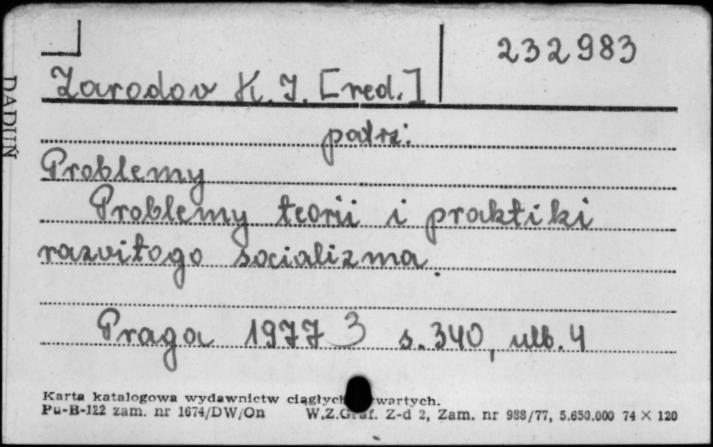 232983
Zarodov K. J. [red.]
DADUŃ
patrz:
Problemy
Problemy teorii i praktiki
razvitogo socializma.
Praga 1977 3 s. 340, ulb. 4
Karta katalogowa wydawnictw ciągłych zwartych.
Pu-B-122 zam. nr 1674/DW/On W.Z.Graf. Z-d 2, Zam. nr 988/77, 5.650.000 74 × 120